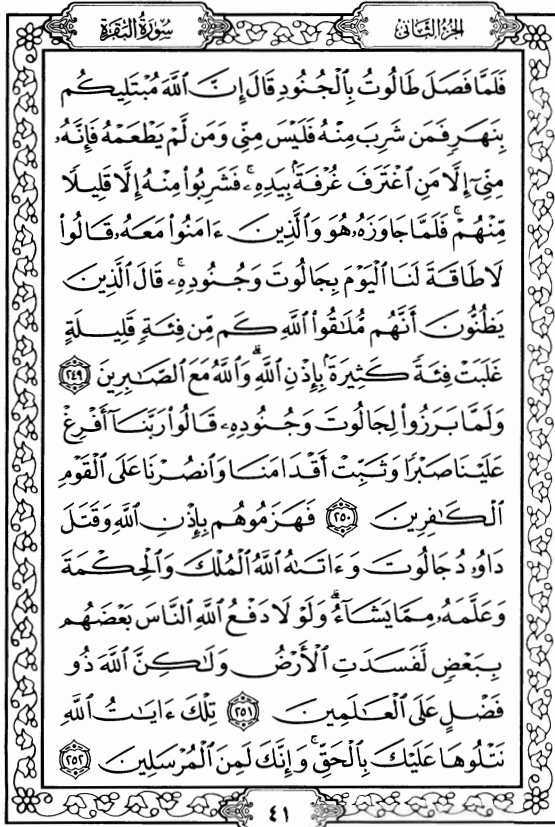 الجزء الثاني
سورة البقرة
فَلَمَّا فَصَلَ طَالُوتُ بِالْجُنُودِ قَالَ إِنَّ اللَّهَ مُبْتَلِيكُم
بِنَهَرٍ فَمَن شَرِبَ مِنْهُ فَلَيْسَ مِنِّي وَمَن لَّمْ يَطْعَمْهُ فَإِنَّهُۥ
مِنِّيٓ إِلَّا مَنِ ٱغْتَرَفَ غُرْفَةَۢ بِيَدِهِۦۚ فَشَرِبُوا۟ مِنْهُ إِلَّا قَلِيلًا
مِّنْهُمْۚ فَلَمَّا جَاوَزَهُۥ هُوَ وَٱلَّذِينَ ءَامَنُوا۟ مَعَهُۥ قَالُوا۟
لَا طَاقَةَ لَنَا ٱلْيَوْمَ بِجَالُوتَ وَجُنُودِهِۦۚ قَالَ ٱلَّذِينَ
يَظُنُّونَ أَنَّهُم مُّلَٰقُوا۟ ٱللَّهِ كَم مِّن فِئَةٍ قَلِيلَةٍ
غَلَبَتْ فِئَةً كَثِيرَةَۢ بِإِذْنِ ٱللَّهِۗ وَٱللَّهُ مَعَ ٱلصَّٰبِرِينَ ٢٤٩
وَلَمَّا بَرَزُوا۟ لِجَالُوتَ وَجُنُودِهِۦ قَالُوا۟ رَبَّنَآ أَفْرِغْ
عَلَيْنَا صَبْرًا وَثَبِّتْ أَقْدَامَنَا وَٱنصُرْنَا عَلَى ٱلْقَوْمِ
ٱلْكَٰفِرِينَ ٢٥٠ فَهَزَمُوهُم بِإِذْنِ ٱللَّهِ وَقَتَلَ
دَاوُۥدُ جَالُوتَ وَءَاتَىٰهُ ٱللَّهُ ٱلْمُلْكَ وَٱلْحِكْمَةَ
وَعَلَّمَهُۥ مِمَّا يَشَآءُۗ وَلَوْلَا دَفْعُ ٱللَّهِ ٱلنَّاسَ بَعْضَهُم
بِبَعْضٍ لَّفَسَدَتِ ٱلْأَرْضُ وَلَٰكِنَّ ٱللَّهَ ذُو
فَضْلٍ عَلَى ٱلْعَٰلَمِينَ ٢٥١ تِلْكَ ءَايَٰتُ ٱللَّهِ
نَتْلُوهَا عَلَيْكَ بِٱلْحَقِّۚ وَإِنَّكَ لَمِنَ ٱلْمُرْسَلِينَ ٢٥٢
٤١